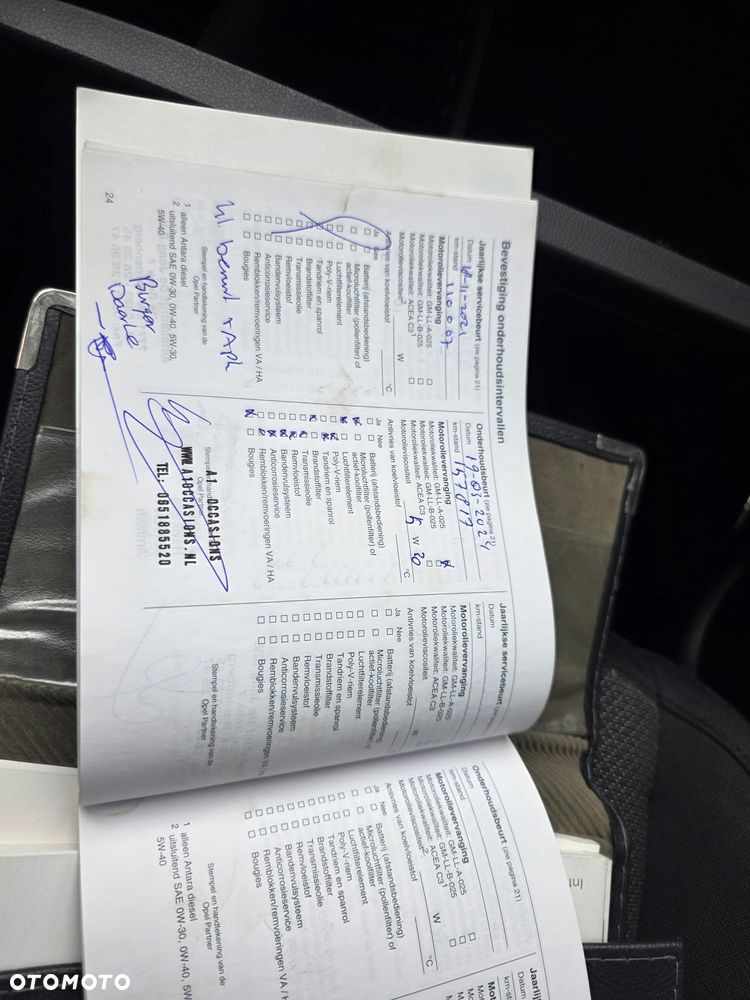 Bevestiging onderhoudsintervallen
Jaarlijkse servicebeurt (zie pagina 21)
Datum
-1-2021
km-stand
110.007
Motorolievervanging
Motoroliekwaliteit: GM-LL-A-025
Motoroliekwaliteit: GM-LL-B-025
Motoroliekwaliteit: ACEA C3¹
Motorolieviscositeit² W
Antivries van koelvloeistof °C
Ja Nee
Batterij (afstandsbediening)
Microluchtfilter (pollenfilter) of
actief-koolfilter
Luchtfilterelement
Poly-V-riem
Tandriem en spanrol
Brandstoffilter
Transmissieolie
Remvloeistof
Bandenvulsysteem
Anticorrosieservice
Remblokken/remvoeringen VA / HA
Bougies
Stempel en handtekening van de
Opel Partner
1 alleen Antara diesel
2 uitsluitend SAE 0W-30, 0W-40, 5W-30,
5W-40
24
Onderhoudsbeurt (zie pagina 21)
Datum 19-05-2024
km-stand 157817
Motorolievervanging
Motoroliekwaliteit: GM-LL-A-025
Motoroliekwaliteit: GM-LL-B-025
Motoroliekwaliteit: ACEA C3
Motorolieviscositeit 5 W 30
Antivries van koelvloeistof °C
Ja Nee
Batterij (afstandsbediening)
Microluchtfilter (pollenfilter) of
actief-koolfilter
Luchtfilterelement
Poly-V-riem
Tandriem en spanrol
Brandstoffilter
Transmissieolie
Remvloeistof
Bandenvulsysteem
Anticorrosieservice
Remblokken/remvoeringen VA / HA
Bougies
Opel Partner
A1 OCCASIONS
WWW.A1OCCASIONS.NL
TEL. 0651885520
Jaarlijkse servicebeurt
Datum
km-stand
Motorolievervanging
Motoroliekwaliteit: GM-LL-A-025
Motoroliekwaliteit: GM-LL-B-025
Motoroliekwaliteit: ACEA C3
Motorolieviscositeit W
Antivries van koelvloeistof
Ja Nee
Batterij (afstandsbediening)
Microluchtfilter (pollenfilter)
actief-koolfilter
Luchtfilterelement
Poly-V-riem
Tandriem en spanrol
Brandstoffilter
Transmissieolie
Remvloeistof
Bandenvulsysteem
Anticorrosieservice
Remblokken/remvoeringen VA / H
Bougies
Stempel en handtekening van de
Opel Partner
Onderhoudsbeurt (zie pagina 21)
Datum
km-stand
Motorolievervanging
Motoroliekwaliteit: GM-LL-A-025
Motoroliekwaliteit: GM-LL-B-025
Motoroliekwaliteit: ACEA C3¹
Motorolieviscositeit² W
Antivries van koelvloeistof °C
Ja Nee
Batterij (afstandsbediening)
Microluchtfilter (pollenfilter) of
actief-koolfilter
Luchtfilterelement
Poly-V-riem
Tandriem en spanrol
Brandstoffilter
Transmissieolie
Remvloeistof
Bandenvulsysteem
Anticorrosieservice
Remblokken/remvoeringen VA / H
Bougies
Stempel en handtekening van de
Opel Partner
1 alleen Antara diesel
2 uitsluitend SAE 0W-30, 0W-40, 5W
5W-40
Jaarli
Datum
km-st
OTOMOTO